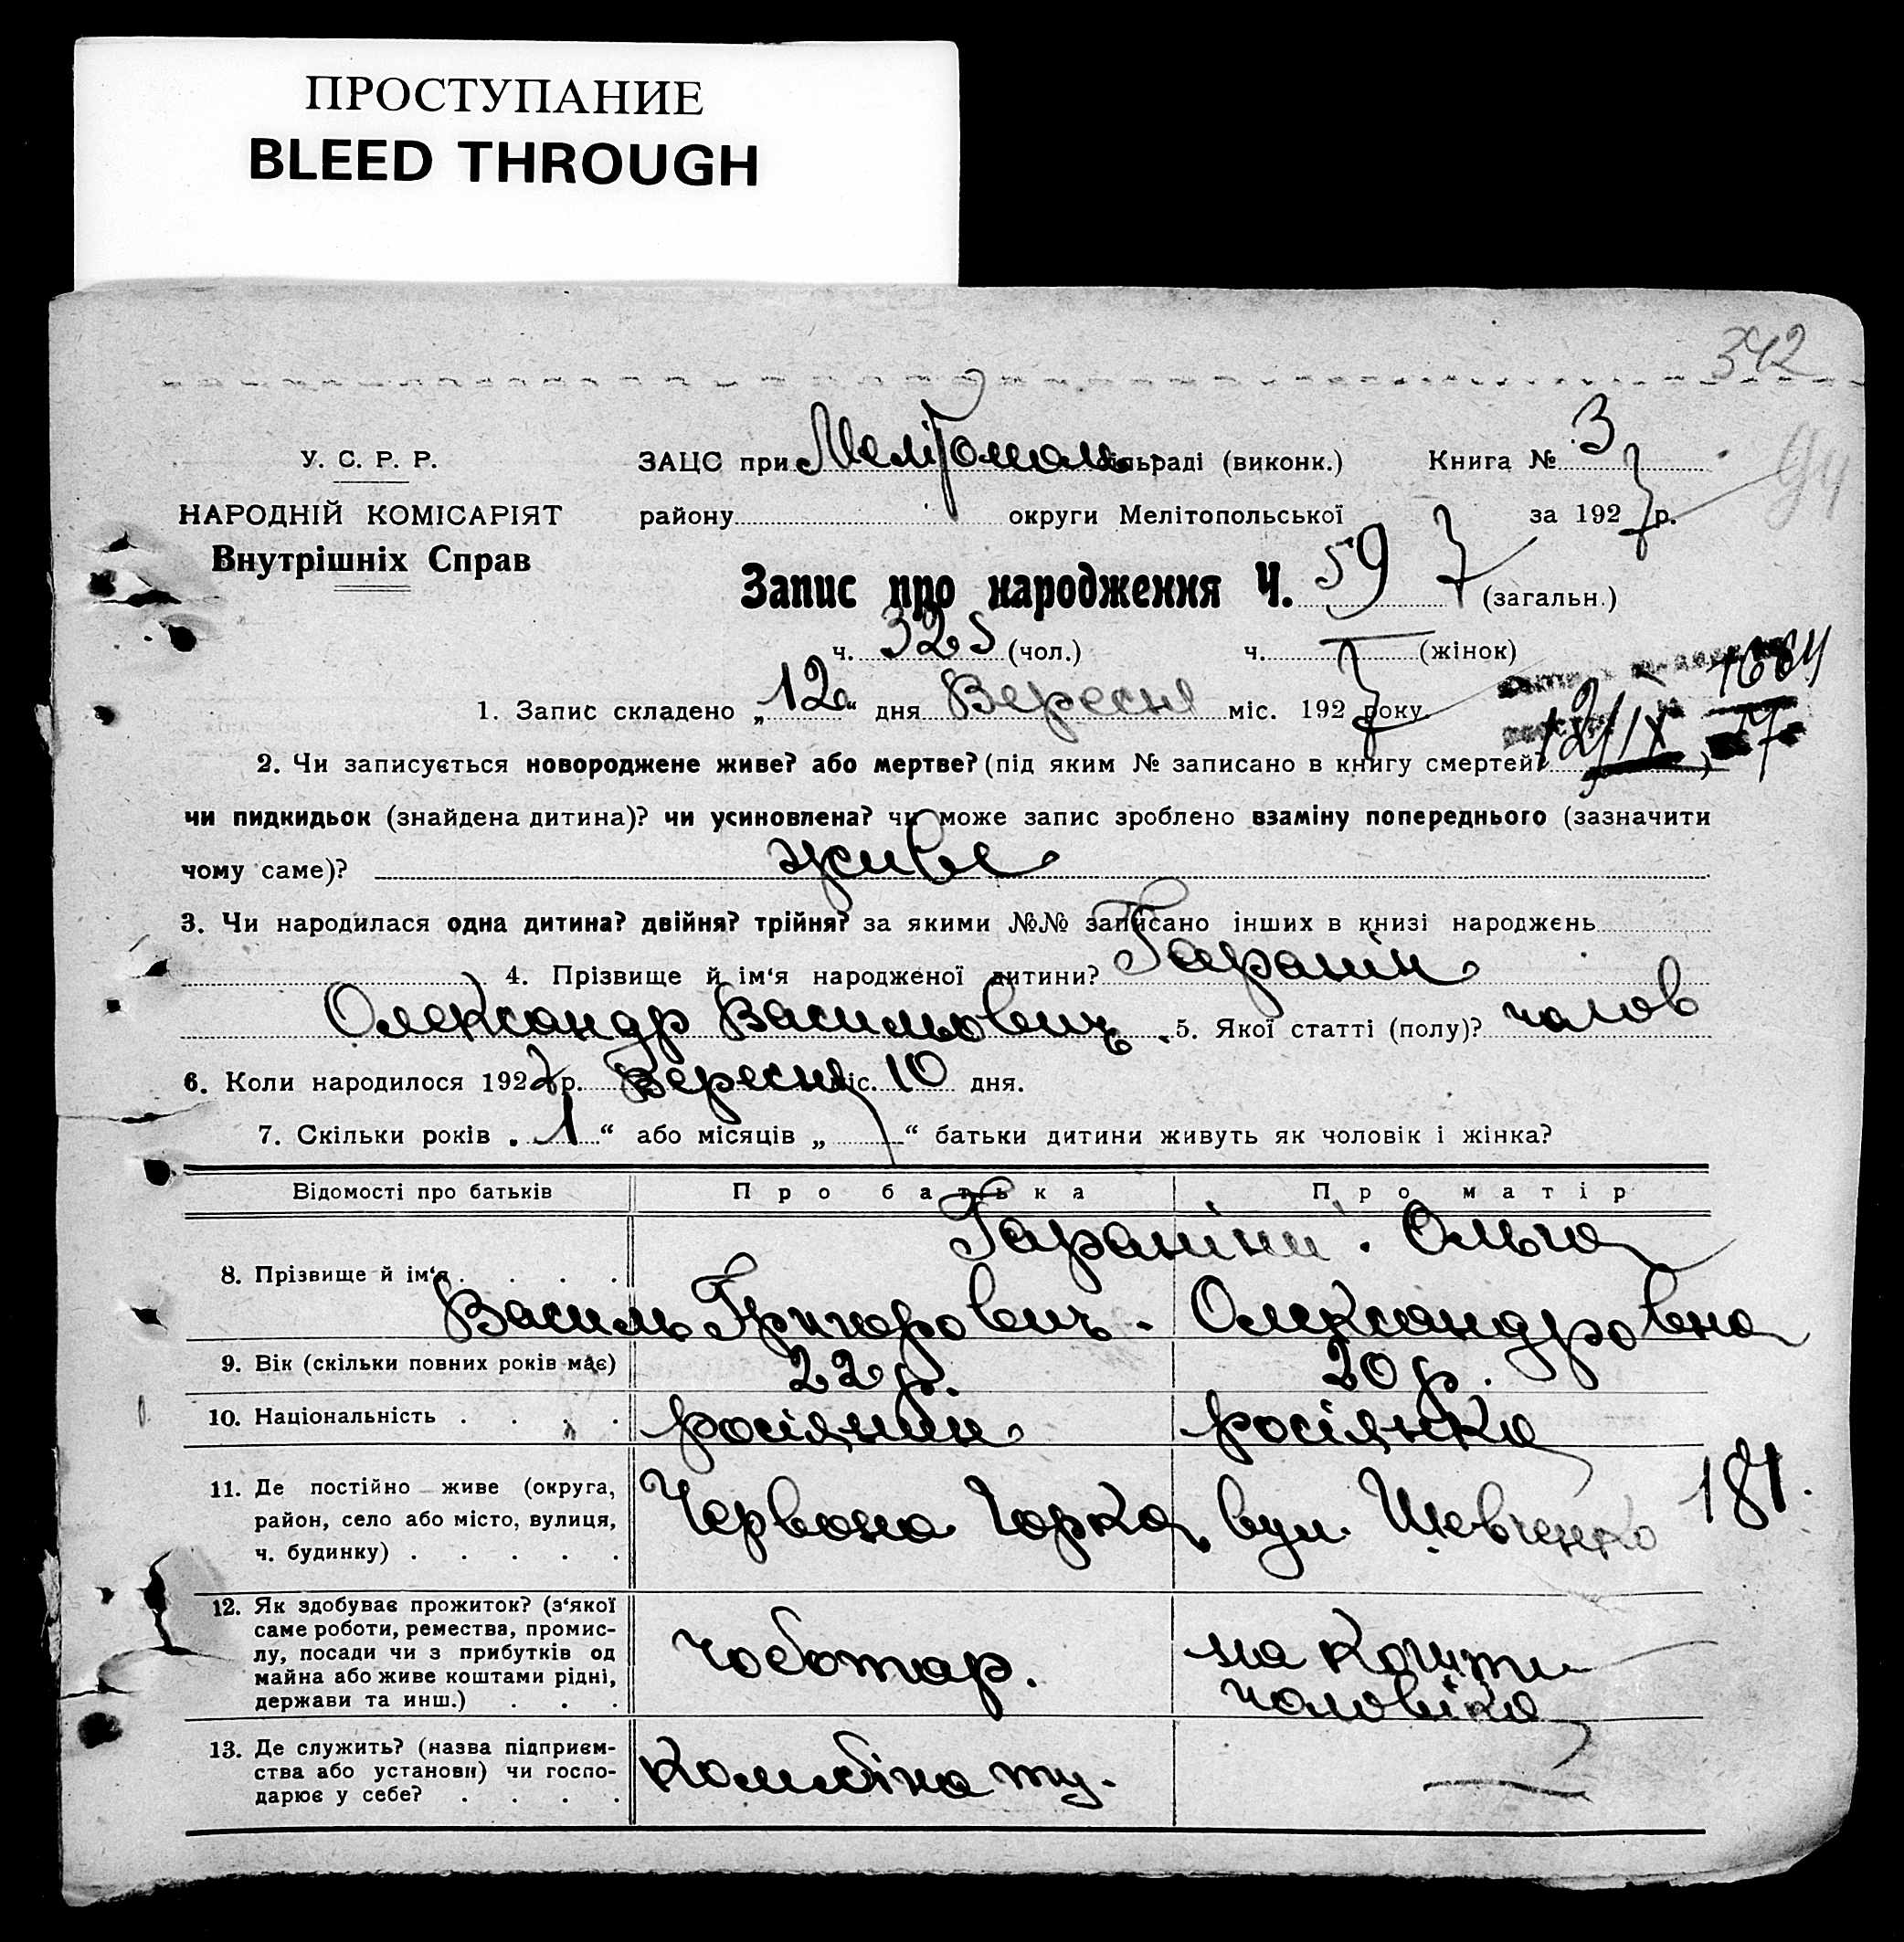 ПРОСТУПАНИЕ
BLEED THROUGH
342
94
У. С. Р. Р.
НАРОДНІЙ КОМІСАРІЯТ
Внутрішніх Справ
ЗАЦС при Мелітополь раді (виконк.) Книга № 3
району округи Мелітопольської за 1927 р.
Запис про народження Ч. 597 (загальн.)
ч. 325 (чол.) ч. (жінок)
1684
1. Запис складено „12“ дня Вересня міс. 1927 року.
12/IX 27
2. Чи записується новороджене живе? або мертве? (під яким № записано в книгу смертей?
чи пидкидьок (знайдена дитина)? чи усиновлена? чи може запис зроблено взаміну попереднього (зазначити
чому саме)? живе
3. Чи народилася одна дитина? двійня? трійня? за якими №№ записано інших в книзі народжень
4. Прізвище й ім‘я народженої дитини? Гаранін
Олександр Васильович. 5. Якої статті (полу)? чолов
6. Коли народилося 1927 р. Вересня міс. 10 дня.
7. Скільки років „1“ або місяців „ “ батьки дитини живуть як чоловік і жінка?
Відомості про батьків Про батька Про матір
8. Прізвище й ім‘я Гараніни. Ольга
Василь Григорович. Олександровна
9. Вік (скільки повних років має) 22 р. 20 р.
10. Національність росіянин росіянка
11. Де постійно живе (округа,
район, село або місто, вулиця,
ч. будинку) Червона Горка, вул. Шевченко 181.
12. Як здобуває прожиток? (з‘якої
саме роботи, ремества, промис-
лу, посади чи з прибутків од
майна або живе коштами рідні,
держави та инш.) чоботар. на кошти
чоловіка
13. Де служить? (назва підприєм-
ства або установи) чи госпо-
дарює у себе? Комбінату.